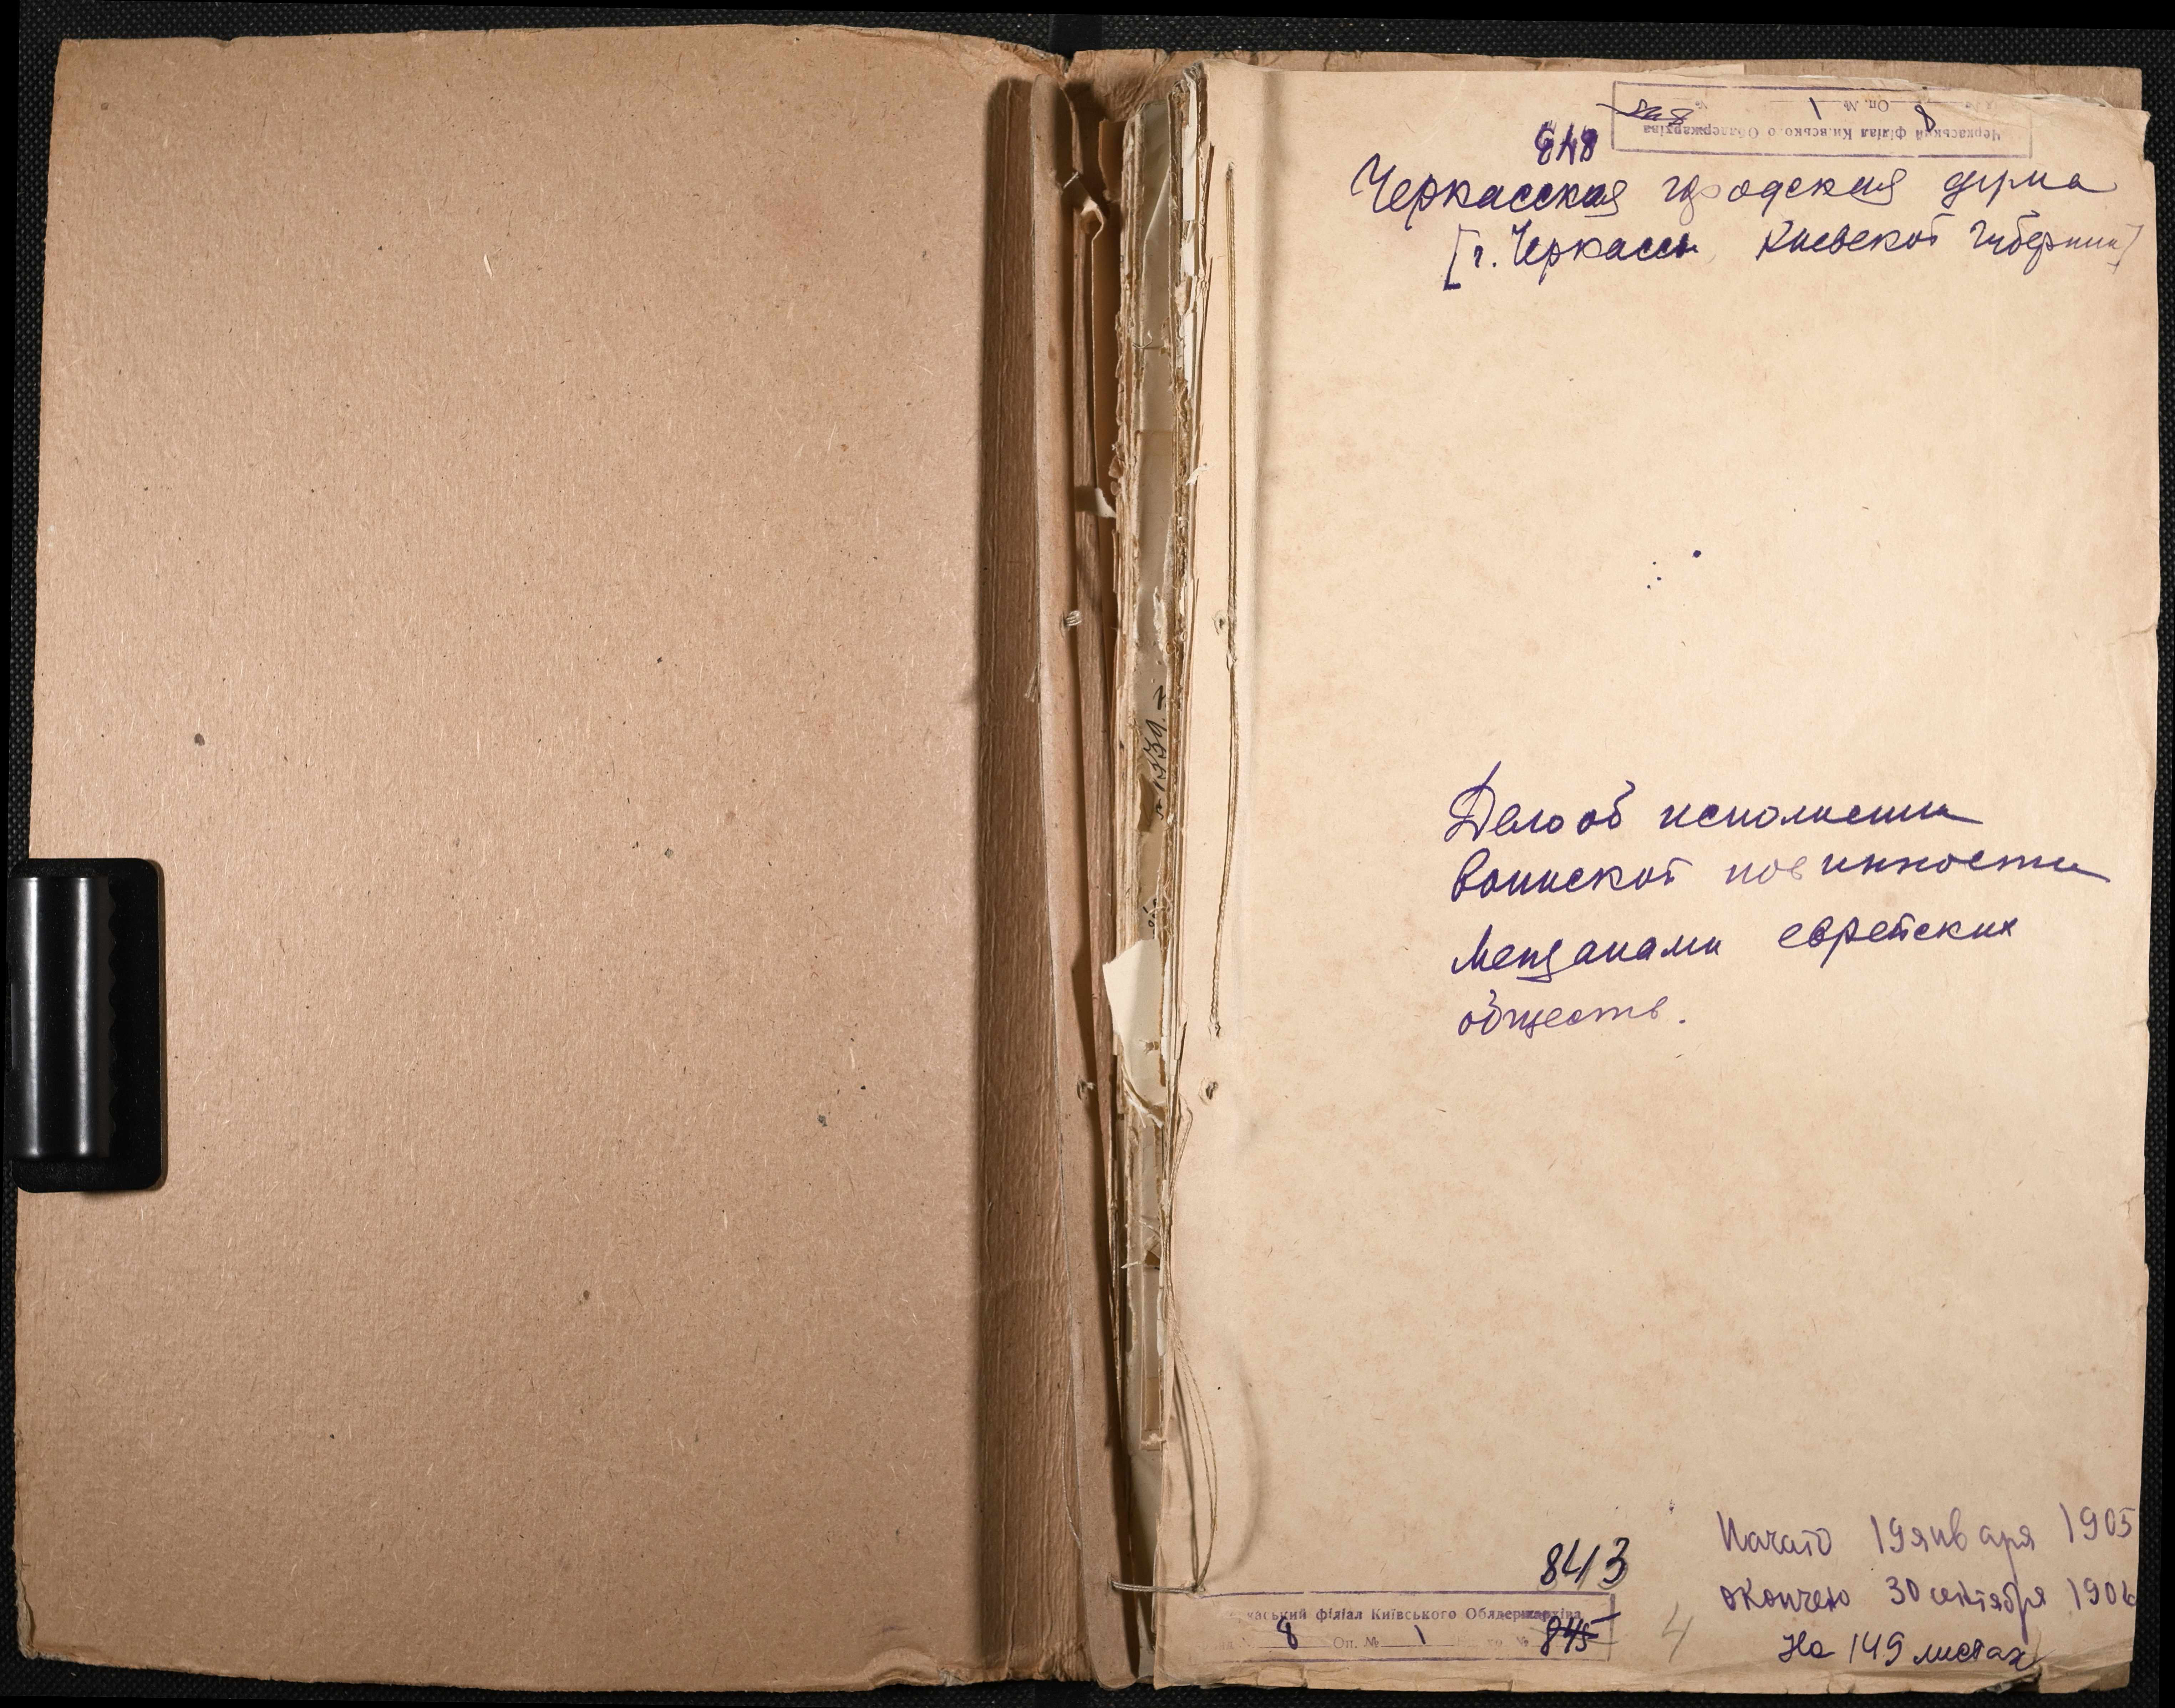 Черкаський філіал Київського Облдержархіва
8 Оп. № 1
848
Черкасская городская дума
[г. Черкассы Киевской губернии]
Дело об исполнении
воинской повинности
мещанами еврейских
обществ.
Начато 19 января 1905
окончено 30 сентября 1906
На 149 листах
843
каський філіал Київського Облдержархіва
8 Оп. № 1 № 845
4